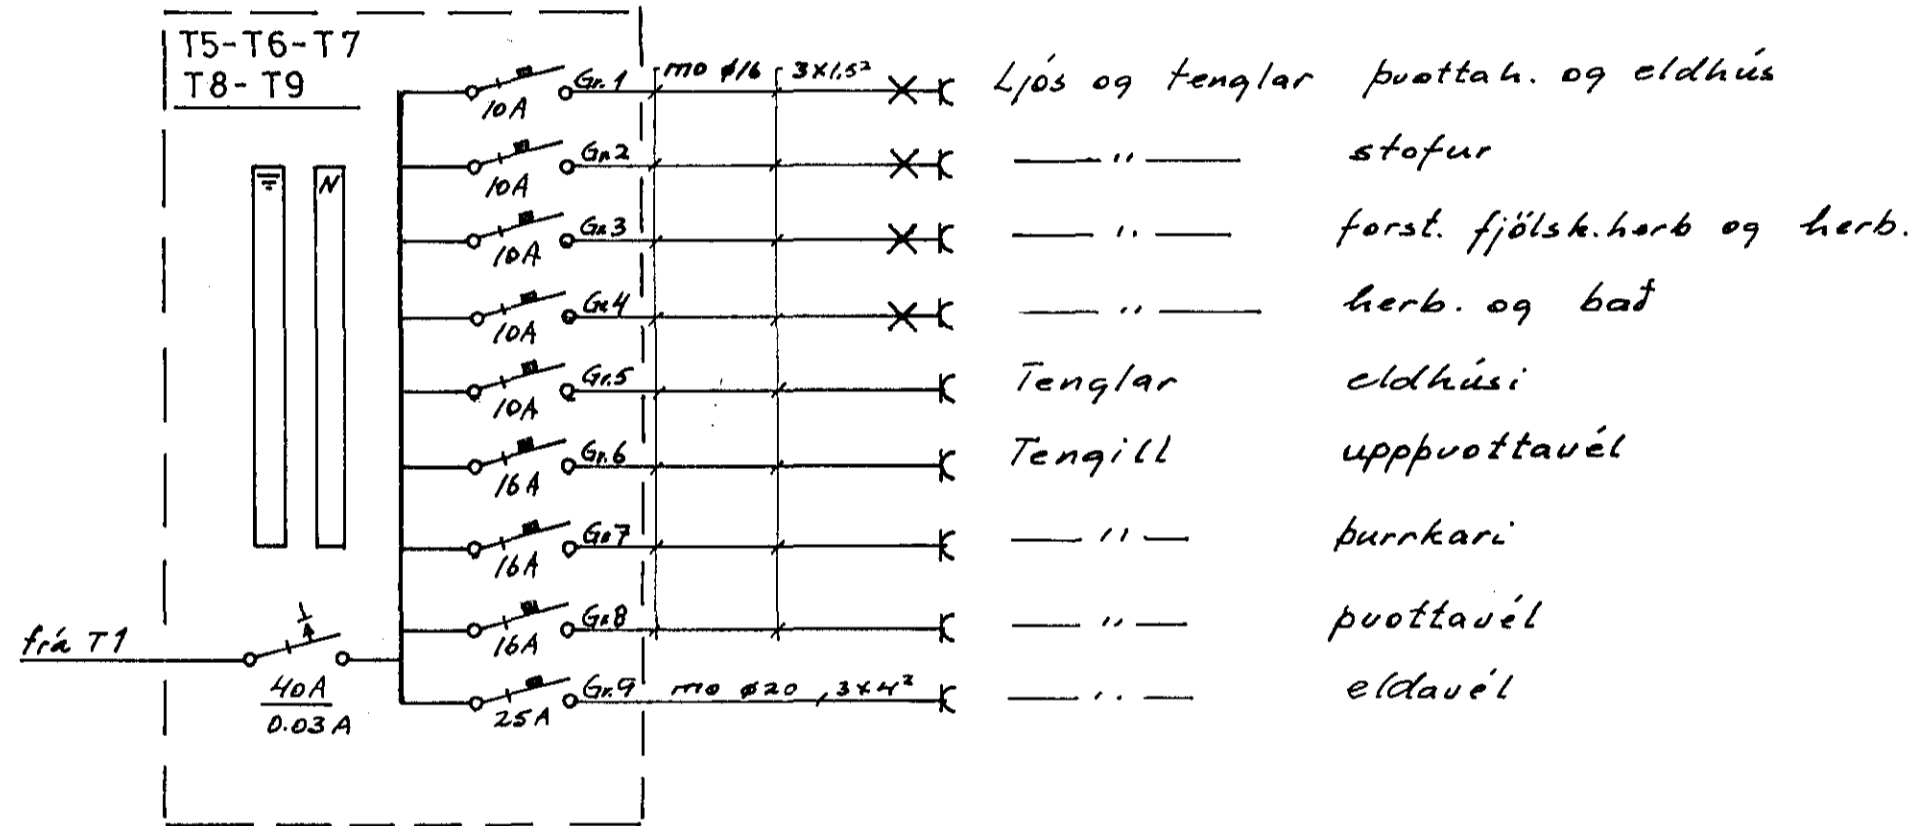 T5-T6-T7
T8-T9
Gr.1 mo ø16 3x1,5² Ljós og tenglar þvottah. og eldhús
10A
Gr.2 —— " —— stofur
10A
N
Gr.3 —— " —— forst. fjölsk.herb og herb.
10A
Gr.4 —— " —— herb. og bað
10A
Gr.5 Tenglar eldhúsi
10A
Gr.6 Tengill uppþvottavél
16A
Gr.7 —— " —— þurrkari
16A
Gr.8 —— " —— þvottavél
16A
frá T1
40A
0.03A
Gr.9 mo ø20, 3x4² —— " —— eldavél
25A